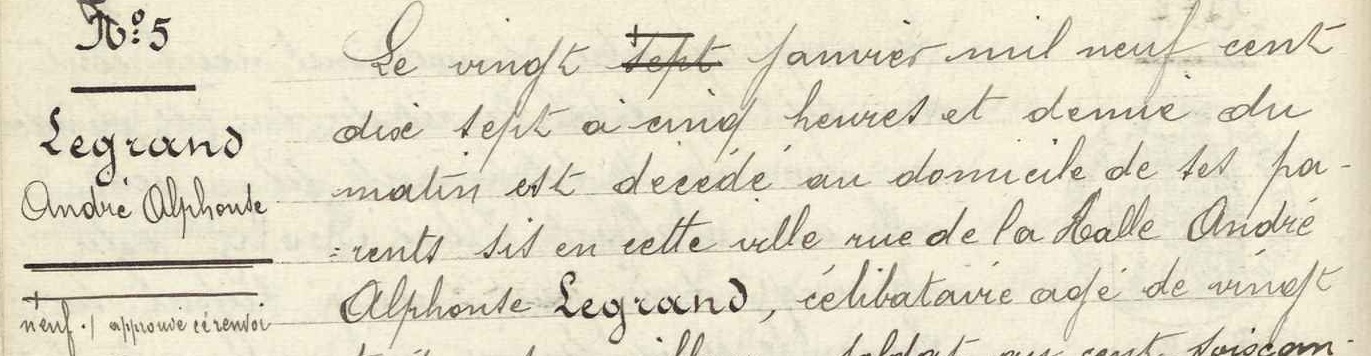 N° 5
Legrand
André Alphonse
neuf ./ approuvé ce renvoi
Le vingt sept janvier mil neuf cent
dix sept à cinq heures et demie du
matin est décédé au domicile de ses pa-
-rents sis en cette ville rue de la Halle André
Alphonse Legrand, célibataire agé de vingt
soldat au cent soixan-